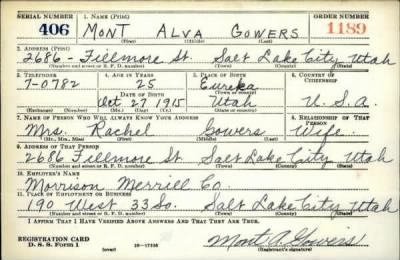 SERIAL NUMBER 1. NAME (Print) ORDER NUMBER
406 MONT ALVA GOWERS 1189
(First) (Middle) (Last)
2. ADDRESS (Print)
2686 - Fillmore St. Salt Lake City Utah
(Number and street or R. F. D. number) (Town) (County) (State)
3. TELEPHONE 4. AGE IN YEARS 5. PLACE OF BIRTH 6. COUNTRY OF CITIZENSHIP
7-0782 25 Eureka
DATE OF BIRTH (Town or county)
Oct 27 1915 Utah U.S.A.
(Exchange) (Number) (Mo.) (Day) (Yr.) (State or country)
7. NAME OF PERSON WHO WILL ALWAYS KNOW YOUR ADDRESS 8. RELATIONSHIP OF THAT PERSON
Mrs. Rachel Gowers Wife
(Mr., Mrs., Miss) (First) (Middle) (Last)
9. ADDRESS OF THAT PERSON
2686 Fillmore St. Salt Lake City Utah
(Number and street or R. F. D. number) (Town) (County) (State)
10. EMPLOYER'S NAME
Morrison Merrill Co.
11. PLACE OF EMPLOYMENT OR BUSINESS
190 West 33 So. Salt Lake City Utah
(Number and street or R. F. D. number) (Town) (County) (State)
I AFFIRM THAT I HAVE VERIFIED ABOVE ANSWERS AND THAT THEY ARE TRUE.
REGISTRATION CARD
D. S. S. Form 1 (over) Mont A. Gowers
(Registrant's signature)